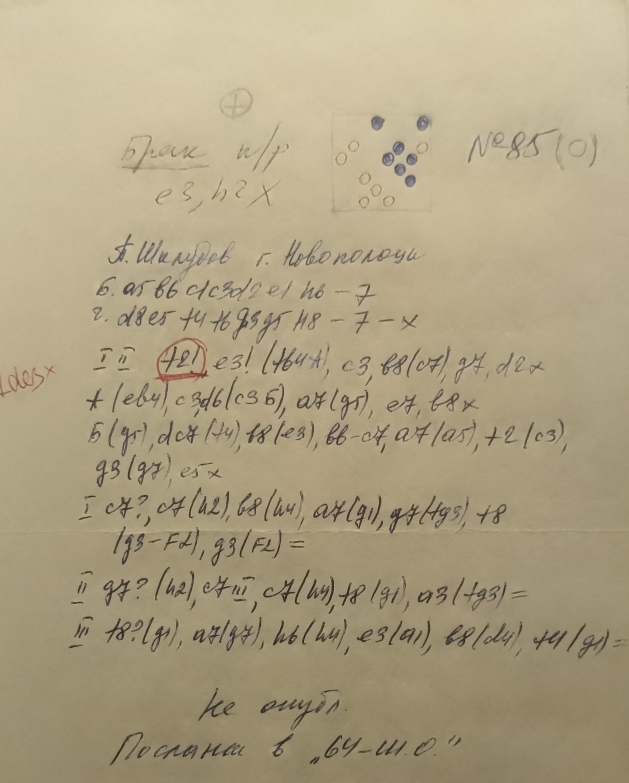 Брак и/р
e3, h2 X
№ 85 (0)
А. Шилудов г. Новополоцк
Б. a5 b6 c1 c3 d2 e1 h6 – 7
ч. d8 e5 f4 f6 g3 g5 h8 – 7 – x
I II f8! e3! (fb4 A), c3, b8 (c7), g7, d2x
A (eb4), c3d6 (c3 Б), a7 (g5), e7, b8x
Б (g5), dc7 (f4), b8 (e3), b6-c7, a7 (a5), f2 (c3),
g3 (g7), e5x
I c7?, c7 (h2), b8 (h4), a7 (g1), g7 (fg3), f8
(g3-F2), g3 (F2) =
II g7? (h2), c7 III, c7 (h4), f8 (g1), a3 (fg3) =
III f8? (g1), a7 (g7), h6 (h4), e3 (a1), b8 (d4), f4 (g1) =
Не опубл.
Послана в „64-Ш.О."